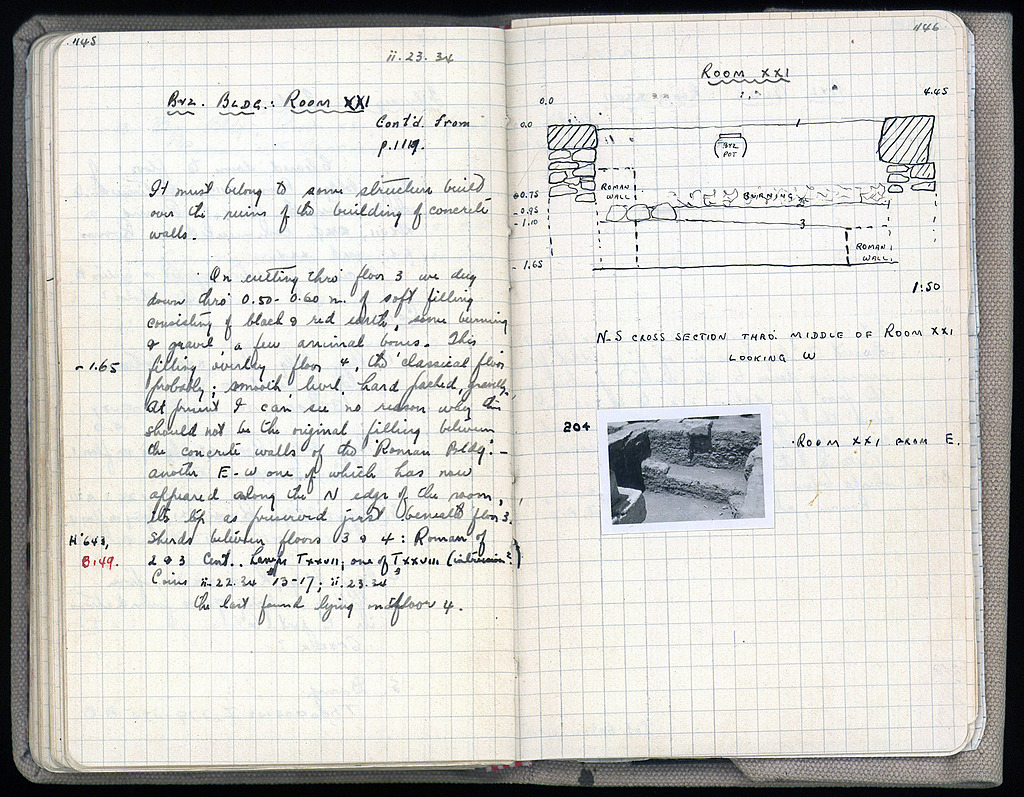 1145
ii.23.34
Byz. Bldg.: Room XXI
Cont'd. from
p. 1119.
It must belong to some structure build
over the ruins of the building of concrete
walls.
On cutting thro' floor 3 we dug
down thro' 0.50-0.60 m. of soft filling
consisting of black & red earth, some burning
& gravel, a few animal bones. This
filling overlay floor 4, the classical floor
- 1.65
probably; smooth, level, hard packed, gravelly.
At present I can see no reason why this
should not be the original filling between
the concrete walls of the Roman Bldg: –
another E-W one of which has now
appeared along the N edge of the room,
its top as preserved just beneath floor 3.
Sherds between floors 3 & 4: Roman of
H' 643,
2 & 3 Cent.. Lamps T XXVII; one of T XXVIII (intrusion?)
B149.
Coins ii-22.34 #13-17; ii.23.34
The last found lying on floor 4.
1146
Room XXI
0.0
4.45
0.0
1
BYZ
POT
ROMAN
WALL
BURNING
- 0.75
- 0.95
- 1.10
3
ROMAN
WALL
- 1.65
1:50
N-S CROSS SECTION THRO. MIDDLE OF ROOM XXI
LOOKING W
204
ROOM XXI FROM E.